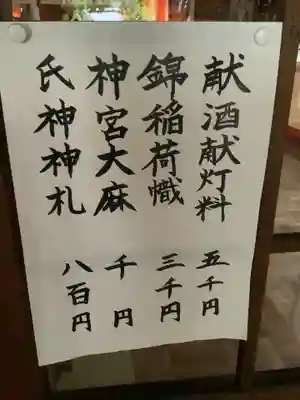 献酒献灯料 五千円
錦稲荷幟 三千円
神宮大麻 千円
氏神神札 八百円